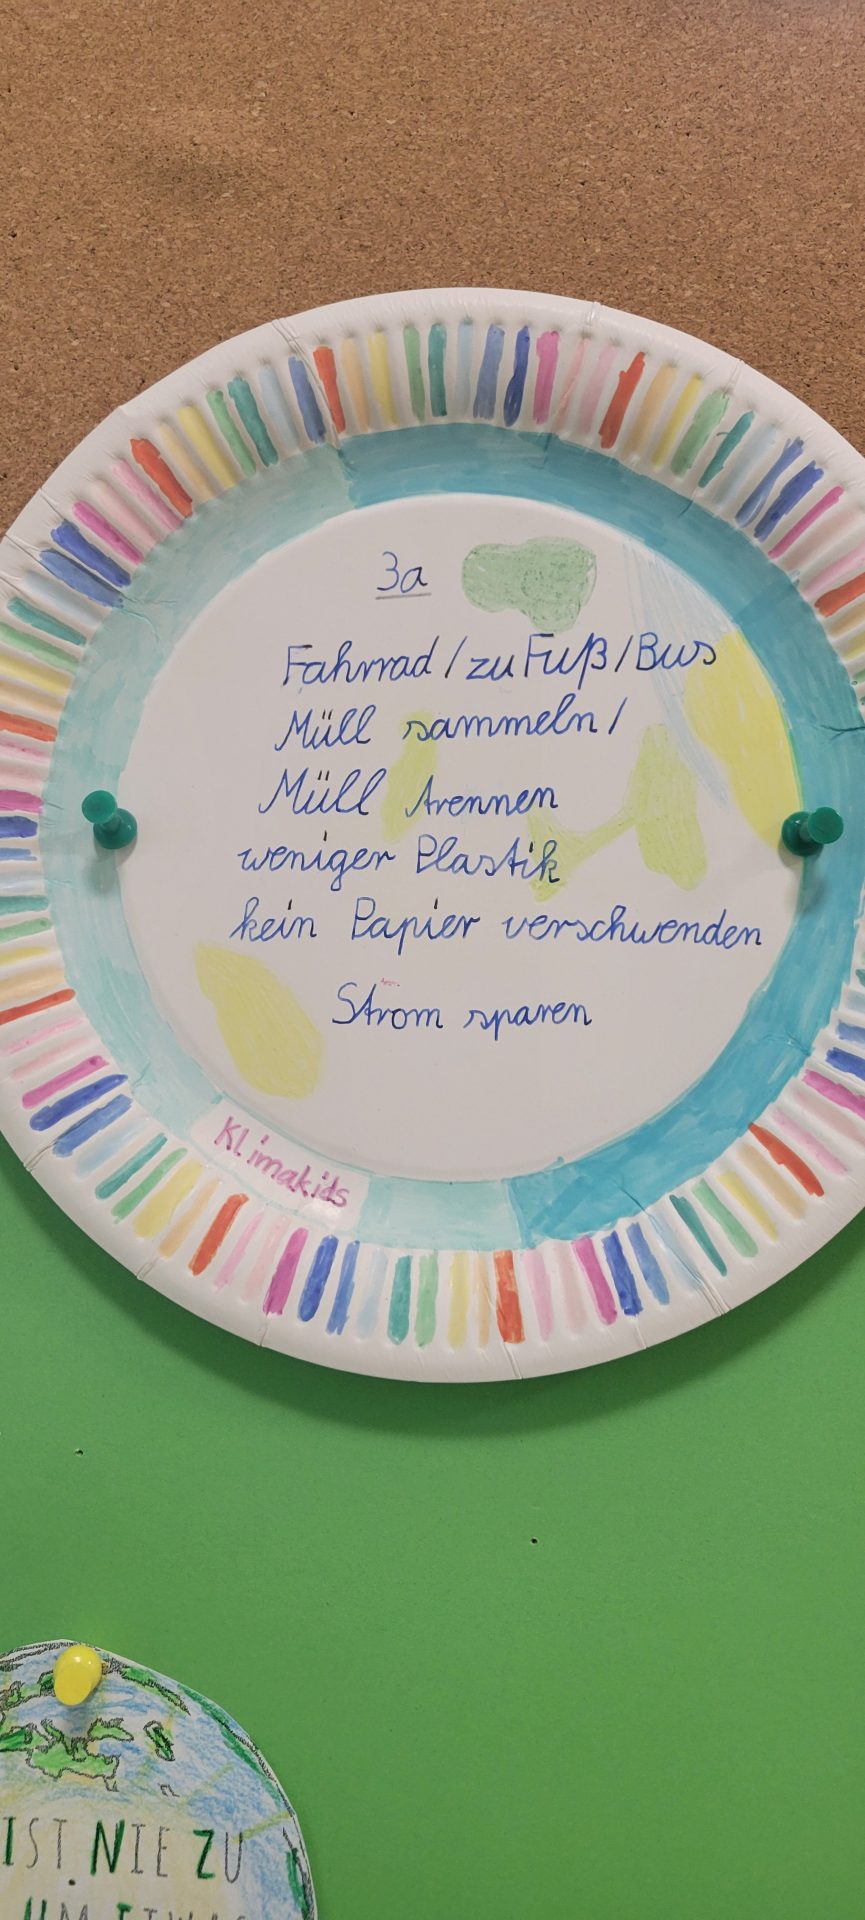 3a
Fahrrad / zu Fuß / Bus
Müll sammeln /
Müll trennen
weniger Plastik
kein Papier verschwenden
Strom sparen
Klimakids
IST NIE ZU
UM ETWAS